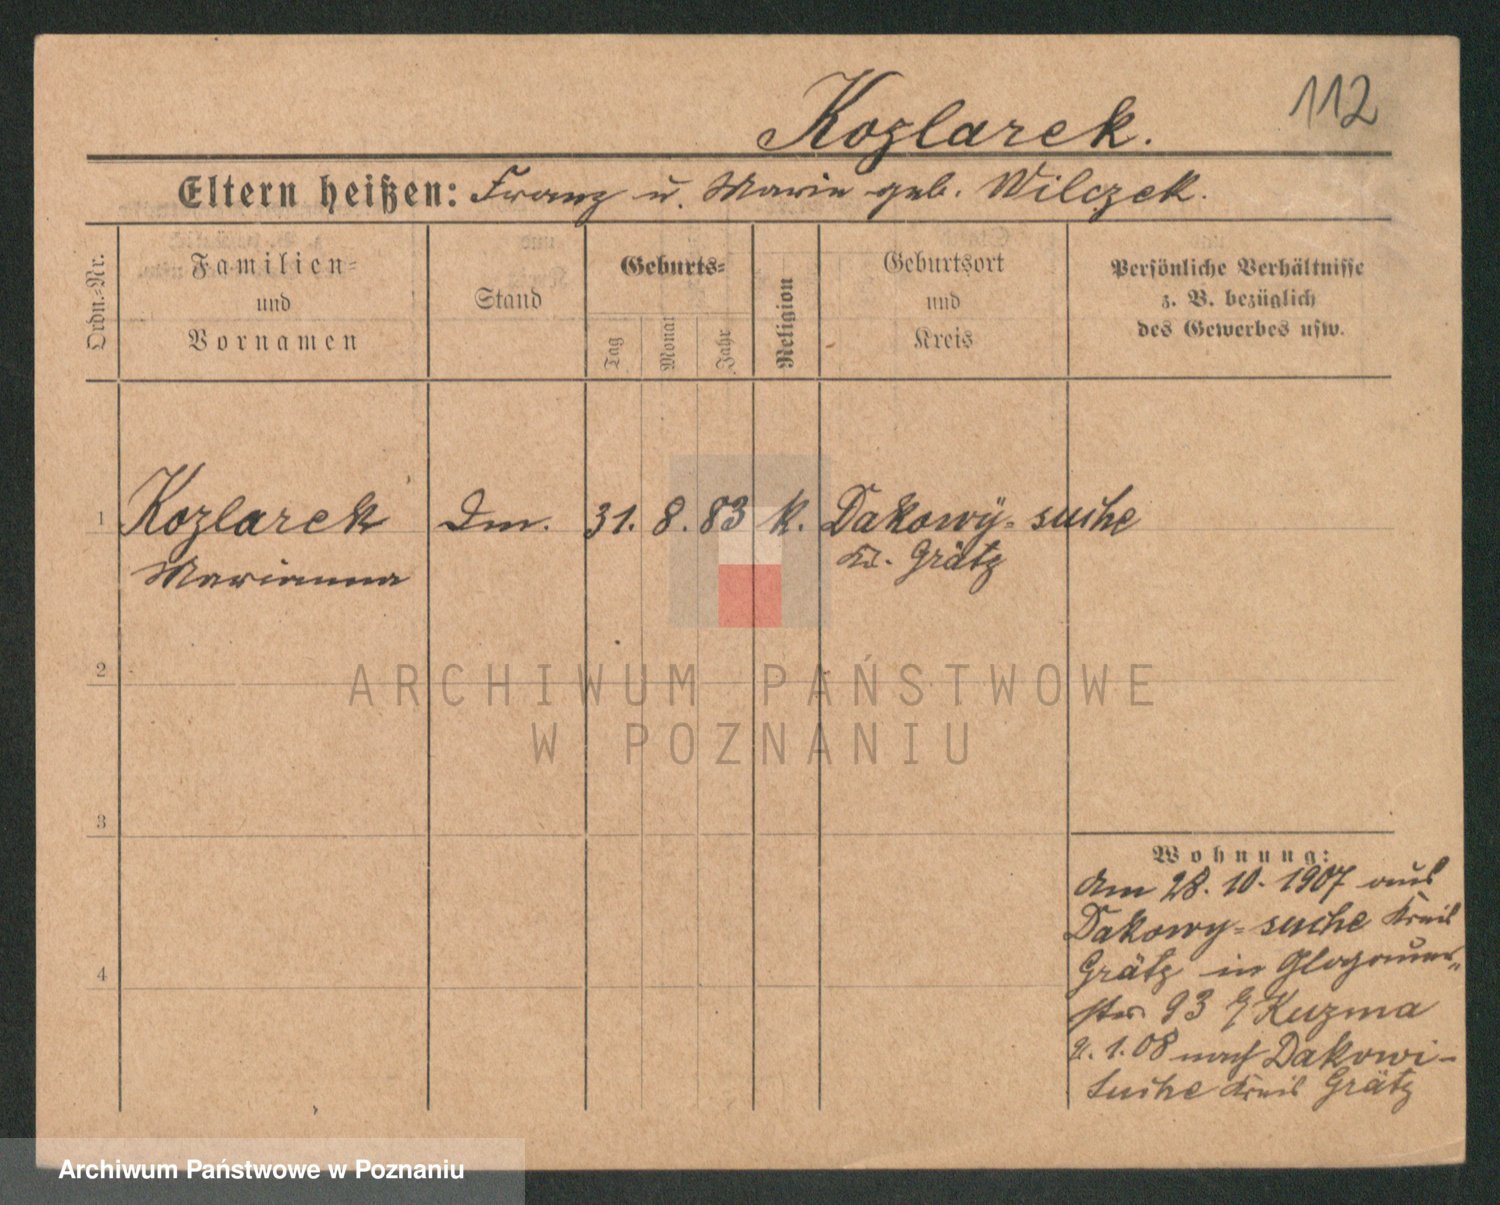 112
Kozlarek.
Eltern heißen: Franz u. Marie geb. Wilczek.
Ordn.-Nr.
Familien-
und
Vornamen
Stand
Geburts-
Tag
Monat
Jahr
Religion
Geburtsort
und
Kreis
Persönliche Verhältnisse
z. B. bezüglich
des Gewerbes usw.
1 Kozlarek Dm. 31. 8. 83 k. Dakowÿ-suche
Marianna Kr. Grätz
2
3
4
Wohnung:
Am 28. 10. 1907 aus
Dakowy-suche Kreis
Grätz in Glogauer-
str 93 b/Kuzma
2. 1. 08 nach Dakowi-
Suche Kreis Grätz
ARCHIWUM PAŃSTWOWE
W POZNANIU
Archiwum Państwowe w Poznaniu